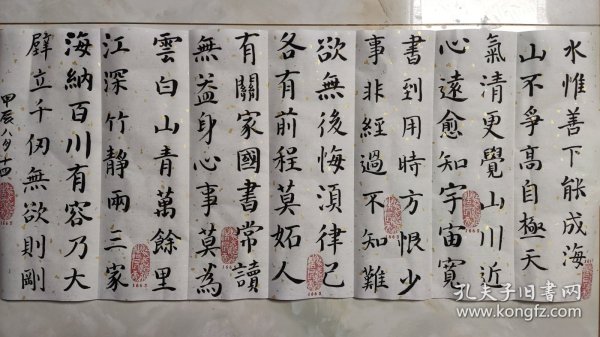 水惟善下能成海
山不爭高自極天
氣清更覺山川近
心遠愈知宇宙寬
書到用時方恨少
事非經過不知難
欲無後悔須律己
各有前程莫妬人
有關家國書常讀
無益身心事莫為
雲白山青萬餘里
江深竹靜兩三家
海納百川有容乃大
壁立千仞無欲則剛
甲辰八月十四
1663
1663
1663
1663
孔夫子旧书网